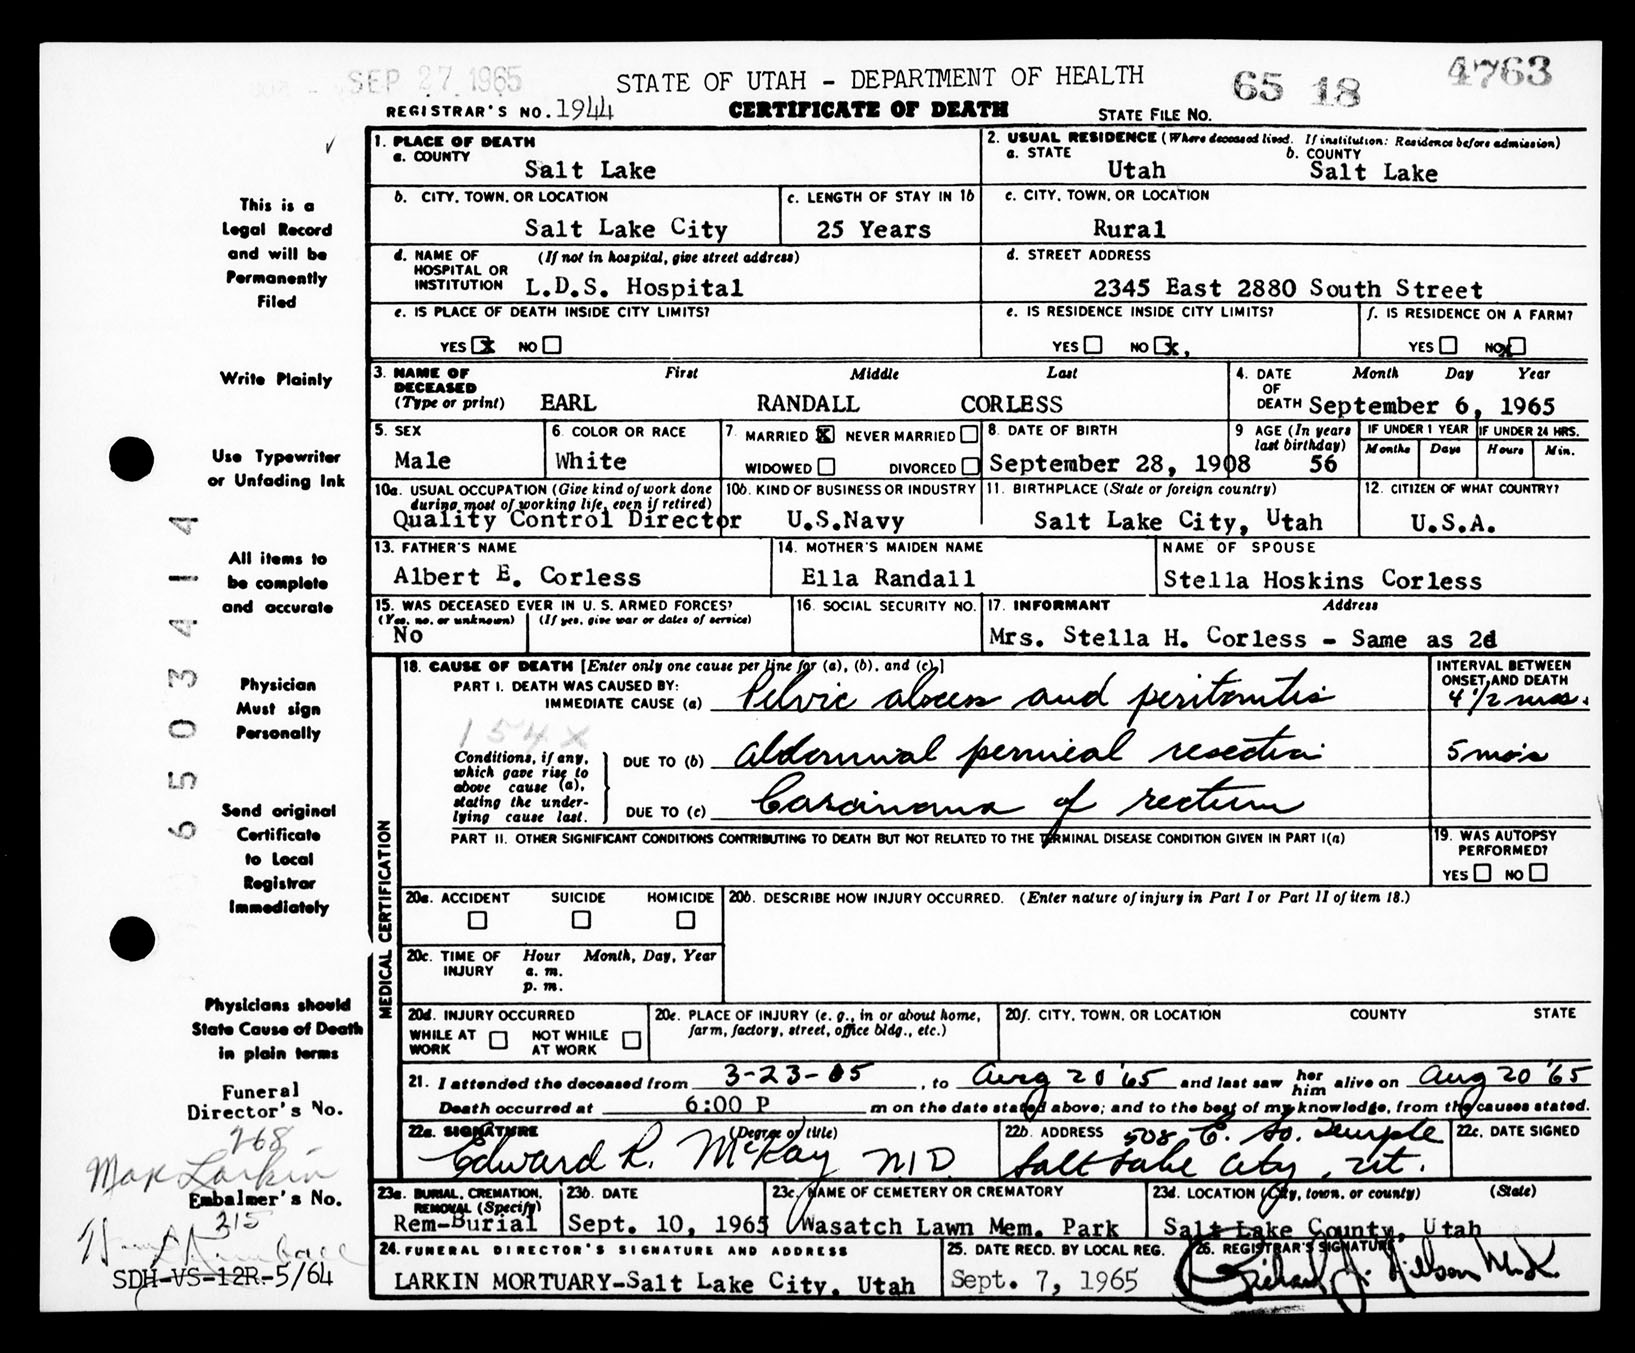 SEP 27 1965
STATE OF UTAH - DEPARTMENT OF HEALTH
65 18
4763
REGISTRAR'S NO. 1944
CERTIFICATE OF DEATH
STATE FILE NO.
1. PLACE OF DEATH
a. COUNTY
Salt Lake
2. USUAL RESIDENCE (Where deceased lived. If institution: Residence before admission)
a. STATE
Utah
b. COUNTY
Salt Lake
b. CITY, TOWN, OR LOCATION
Salt Lake City
c. LENGTH OF STAY IN 1b
25 Years
c. CITY, TOWN, OR LOCATION
Rural
d. NAME OF HOSPITAL OR INSTITUTION
(If not in hospital, give street address)
L.D.S. Hospital
d. STREET ADDRESS
2345 East 2880 South Street
e. IS PLACE OF DEATH INSIDE CITY LIMITS?
YES X NO
e. IS RESIDENCE INSIDE CITY LIMITS?
YES NO X
f. IS RESIDENCE ON A FARM?
YES NO X
3. NAME OF DECEASED
(Type or print)
First Middle Last
EARL RANDALL CORLESS
4. DATE OF DEATH
Month Day Year
September 6, 1965
5. SEX
Male
6. COLOR OR RACE
White
7. MARRIED X NEVER MARRIED
WIDOWED DIVORCED
8. DATE OF BIRTH
September 28, 1908
9 AGE (In years last birthday)
56
IF UNDER 1 YEAR
Months Days
IF UNDER 24 HRS.
Hours Min.
10a. USUAL OCCUPATION (Give kind of work done during most of working life, even if retired)
Quality Control Director
10b. KIND OF BUSINESS OR INDUSTRY
U.S.Navy
11. BIRTHPLACE (State or foreign country)
Salt Lake City, Utah
12. CITIZEN OF WHAT COUNTRY?
U.S.A.
13. FATHER'S NAME
Albert E. Corless
14. MOTHER'S MAIDEN NAME
Ella Randall
NAME OF SPOUSE
Stella Hoskins Corless
15. WAS DECEASED EVER IN U.S. ARMED FORCES?
(Yes, no, or unknown) (If yes, give war or dates of service)
No
16. SOCIAL SECURITY NO.
17. INFORMANT Address
Mrs. Stella H. Corless - Same as 2d
MEDICAL CERTIFICATION
18. CAUSE OF DEATH [Enter only one cause per line for (a), (b), and (c).]
PART I. DEATH WAS CAUSED BY:
IMMEDIATE CAUSE (a) Pelvic abcess and peritonitis
INTERVAL BETWEEN ONSET AND DEATH
4 1/2 mos.
154X
Conditions, if any, which gave rise to above cause (a), stating the underlying cause last.
DUE TO (b) abdominal perineal resection
5 mo's
DUE TO (c) Carcinoma of rectum
PART II. OTHER SIGNIFICANT CONDITIONS CONTRIBUTING TO DEATH BUT NOT RELATED TO THE TERMINAL DISEASE CONDITION GIVEN IN PART I(a)
19. WAS AUTOPSY PERFORMED?
YES NO
20a. ACCIDENT SUICIDE HOMICIDE
20b. DESCRIBE HOW INJURY OCCURRED. (Enter nature of injury in Part I or Part II of item 18.)
20c. TIME OF INJURY
Hour Month, Day, Year
a. m.
p. m.
20d. INJURY OCCURRED
WHILE AT WORK NOT WHILE AT WORK
20e. PLACE OF INJURY (e. g., in or about home, farm, factory, street, office bldg., etc.)
20f. CITY, TOWN, OR LOCATION COUNTY STATE
21. I attended the deceased from 3-23-65, to Aug 20 '65 and last saw her him alive on Aug 20 '65
Death occurred at 6:00 P m on the date stated above; and to the best of my knowledge, from the causes stated.
22a. SIGNATURE (Degree or title)
Edward R. McKay M.D
22b. ADDRESS 508 E. So. Temple
Salt Lake City, Ut.
22c. DATE SIGNED
23a. BURIAL, CREMATION, REMOVAL (Specify)
Rem-Burial
23b. DATE
Sept. 10, 1965
23c. NAME OF CEMETERY OR CREMATORY
Wasatch Lawn Mem. Park
23d. LOCATION (City, town, or county) (State)
Salt Lake County, Utah
24. FUNERAL DIRECTOR'S SIGNATURE AND ADDRESS
LARKIN MORTUARY-Salt Lake City, Utah
25. DATE RECD. BY LOCAL REG.
Sept. 7, 1965
26. REGISTRAR'S SIGNATURE
This is a
Legal Record
and will be
Permanently
Filed
Write Plainly
Use Typewriter
or Unfading Ink
All items to
be complete
and accurate
Physician
Must sign
Personally
Send original
Certificate
to Local
Registrar
Immediately
Physicians should
State Cause of Death
in plain terms
Funeral
Director's No.
268
Max Larkin
Embalmer's No.
215
SDH-VS-12R-5/64
6503414